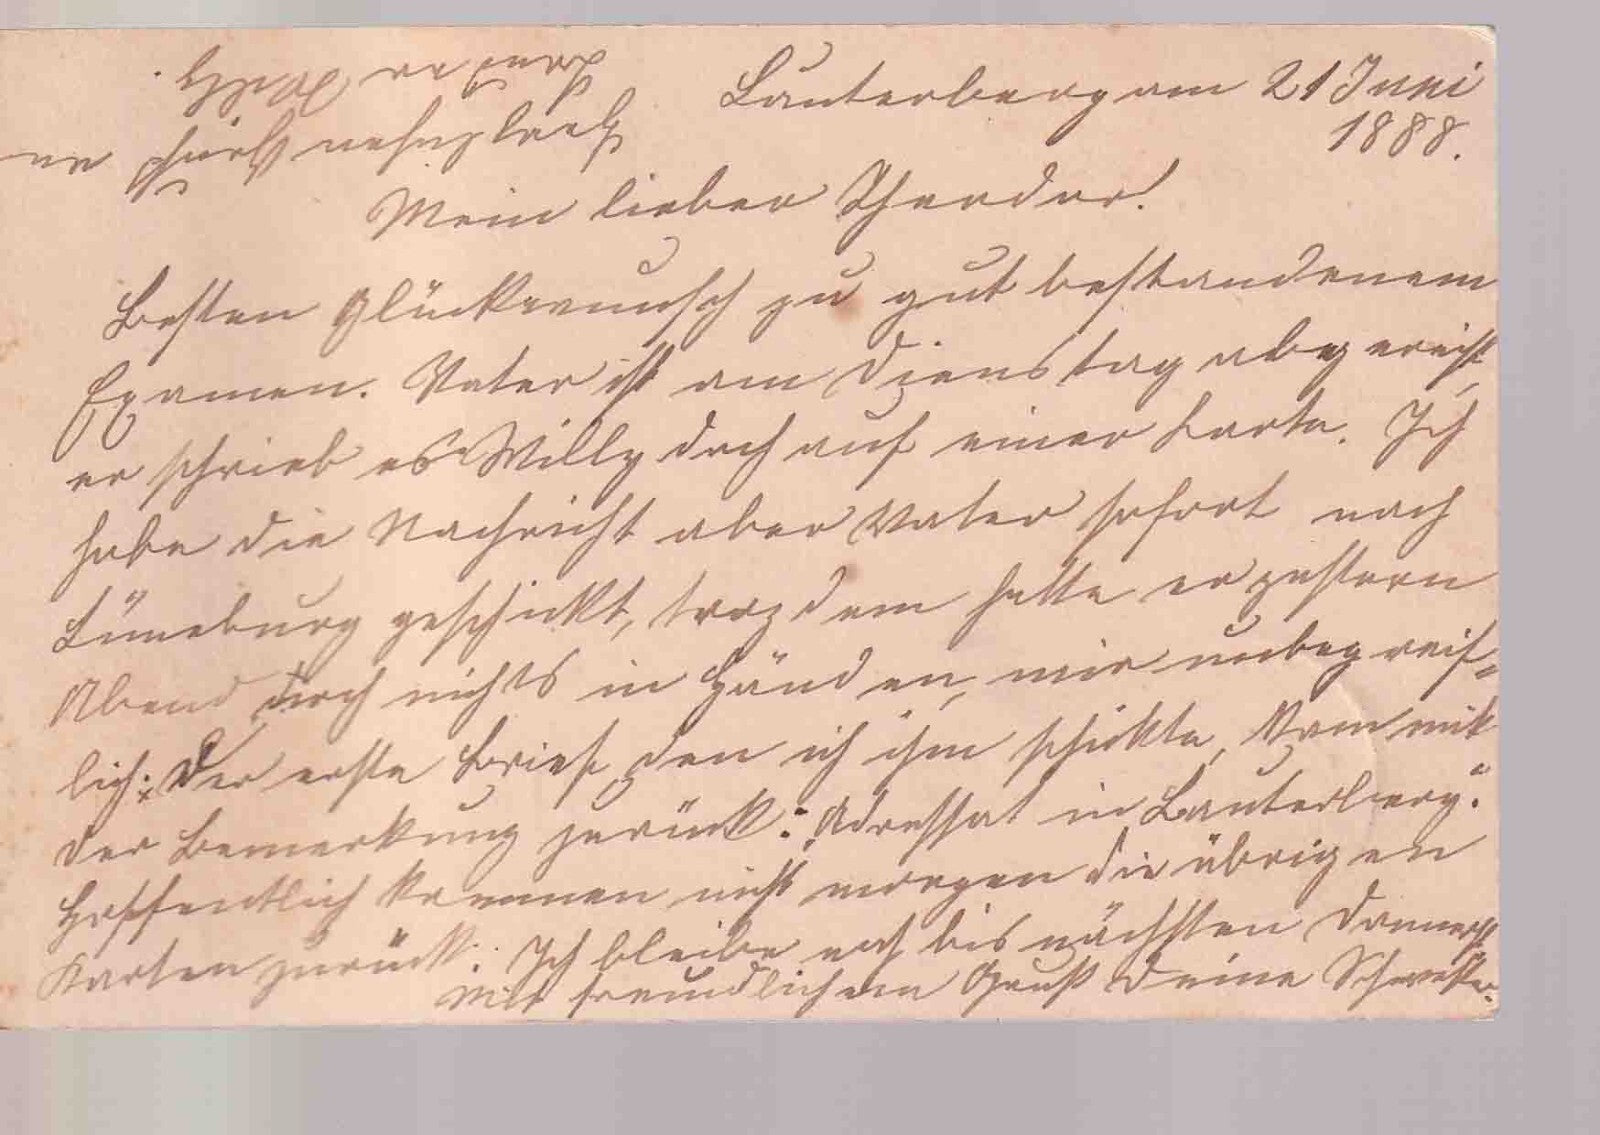 Lauterberg am 21 Juni
1888.
Mein lieber Theodor!
Besten Glückwunsch zu gut bestandenem
Examen. Vater ist am Dienstag abgereist,
er schrieb es Willy doch auf einer Karte. Ich
habe die Nachricht aber Vater sofort nach
Lüneburg geschickt, trozdem hatte er gestern
Abend noch nichts in Händen, mir unbegreif-
lich. Der erste Brief, den ich ihm schickte, kam mit
der Bemerkung zurück: „Adressat in Lauterberg."
Hoffentlich kommen nicht morgen die übrigen
Karten zurück. Ich bleibe noch bis nächsten Donnerst
Mit freundlichem Gruß Deine Schwester